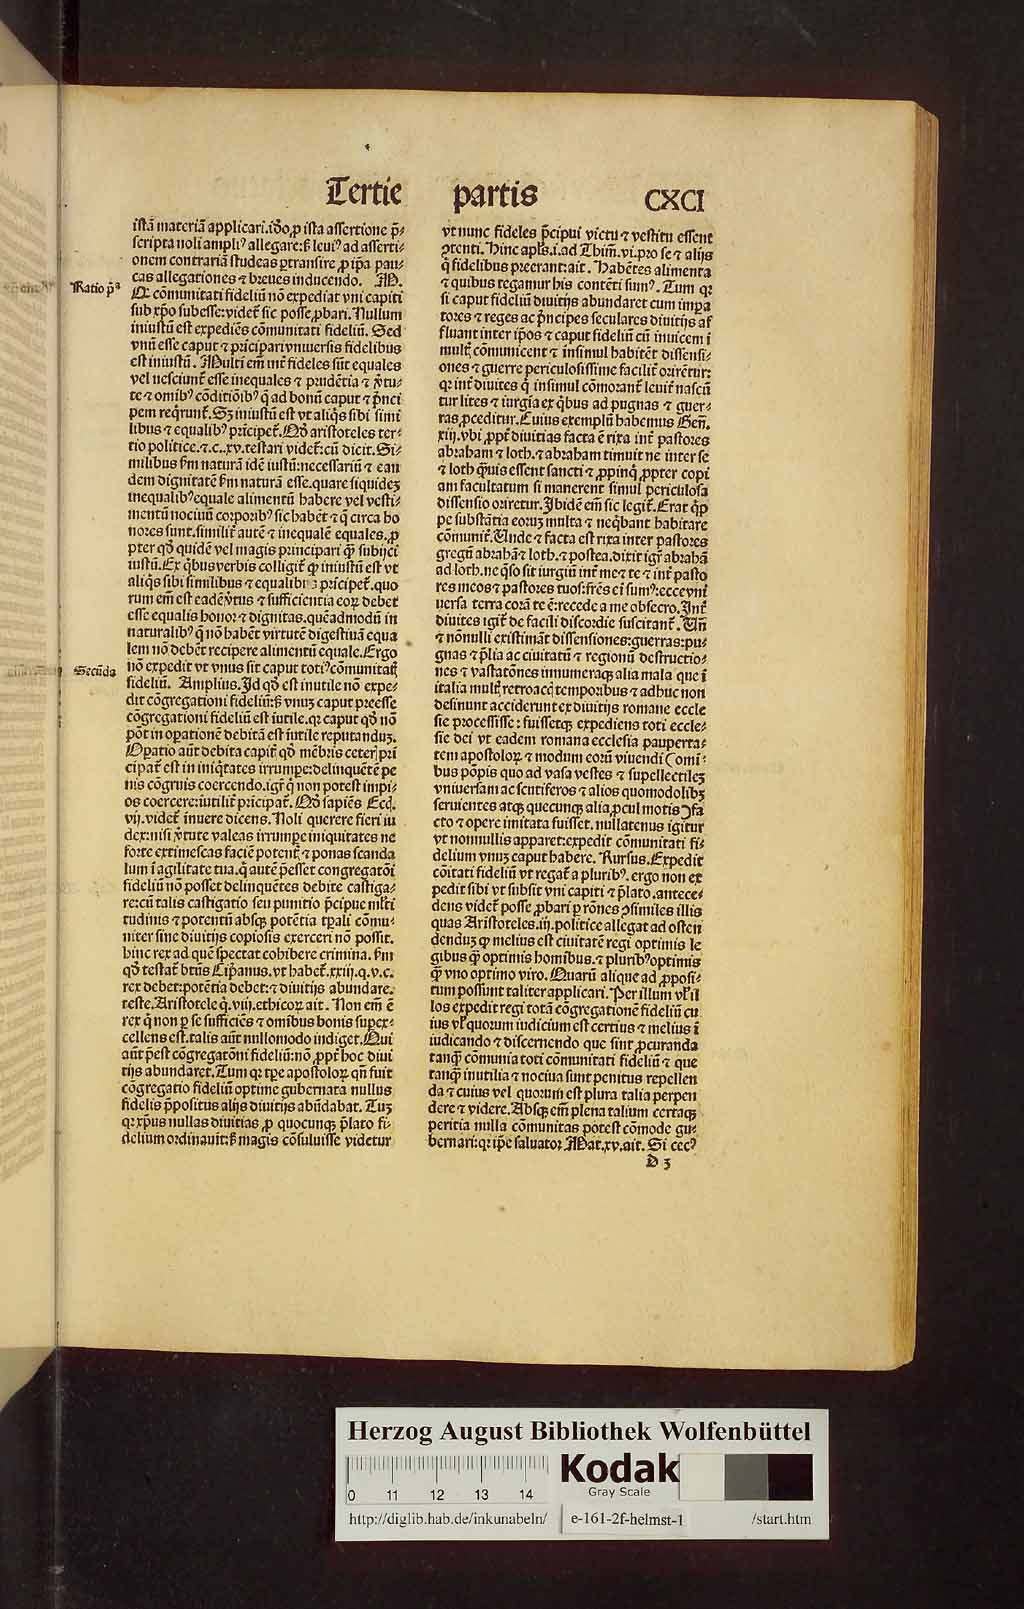 Tertie partis CXCI
istã materiã applicari.iðo ꝓ ista assertione p̃-
scripta noli ampliꝰ allegare:sꝫ leuiꝰ ad asserti-
onem contrariã studeas ꝑtransire ꝓ ip̃a pau-
cas allegationes ⁊ breues inducendo. M.
Ratio p̃ª
Qꝛ cõmunitati fideliũ nõ expediat vni capiti
sub xp̃o subesse:videt̃ sic posse ꝓbari. Nullum
iniustũ est expediẽs cõmunitati fideliũ. Sed
vnũ esse caput ⁊ p̃ricipari vniuersis fidelibus
est iniustũ. Multi em̃ int̃ fideles sũt equales
vel nesciunt̃ esse inequales ⁊ prudẽtia ⁊ v̓tu-
te ⁊ omibꝰ cõditiõibꝰ q̃ ad bonũ caput ⁊ p̃nci
pem req̃runt̃. Sꝫ iniustũ est vt aliq̃s sibi simi
libus ⁊ equalibꝰ p̃ricipet̃. Qð aristoteles ter-
tio politice.⁊.c..xv.testari videt̃:cũ dicit. Si-
milibus ẽm naturã idẽ iustũ:necessariũ ⁊ ean
dem dignitatẽ ẽm naturã esse.quare siquidẽ
inequalibꝰ equale alimentũ habere vel vesti-
mentũ nociuũ corporibꝰ sic habet̃ ⁊ q̃ circa ho
nores sunt.similit̃ autẽ ⁊ inequalẽ equales.ꝓ
pter qð quidẽ vel magis principari q̃ʒ subijci
iustũ. Ex q̃bus verbis colligit̃ ꝙ iniustũ est vt
aliq̃s sibi similibus ⁊ equalibꝰ p̃ricipet̃.quo
rum em̃ est eadẽ v̓tus ⁊ sufficientia eoꝝ debet
esse equalis honor ⁊ dignitas.quẽadmodũ in
naturalibꝰ q̃ nõ habẽt virtutẽ digestiuã equa
lem nõ debẽt recipere alimentũ equale. Ergo
Secũda
nõ expedit vt vnus sit caput totiꝰ cõmunitatꝭ
fideliũ. Amplius. Id qð est inutile nõ expe-
dit cõgregationi fideliũ:sꝫ vnuʒ caput preesse
cõgregationi fideliũ est iutile.qꝛ caput qð nõ
põt in oꝑationẽ debitã est iutile reputanduʒ.
Oꝑatio aũt debita capit̃ qð mẽbris ceter̃ pri
cipat̃ est in iniq̃tates irrumpe:delinquẽtẽ pe
nis cõgruis coercendo.igit̃ q̃ non potest impi-
os coercere:iutilit̃ p̃ricipat̃. Qð sapiẽs Ecq̃.
vij.videt̃ inuere dicens. Noli querere fieri iu
dex:nisi v̓tute valeas irrumpe iniquitates ne
forte extimescas faciẽ potent̃ ⁊ ponas scanda
lum i agilitate tua.q̃ autẽ p̃esset congregatõi
fideliũ nõ posset delinquẽtes debite castiga-
re:cũ talis castigatio seu punitio p̃cipue ml̓ti
tudinis ⁊ potentũ absqꝫ potẽtia tp̃ali cõmu-
niter sine diuitijs copiosis exerceri nõ possit.
hinc rex ad quẽ spectat cohibere crimina. ẽm
qð testat̃ btũs Cip̃anus.vt habet̃.xxiij.q.v.c.
rex debet:potẽtia debet:⁊ diuitijs abundare.
teste. Aristotele q̃.viij.ethicoꝝ ait. Non em̃ ẽ
rex q̃ non ꝑ se sufficiẽs ⁊ omibus bonis supex-
cellens est.talis aũt nullomodo indiget. Qui
aũt p̃est cõgregatõni fideliũ:nõ ꝓpt̃ hoc diui
tijs abundaret. Tum qꝛ tꝑe apostoloꝝ qñ fuit
cõgregatio fideliũ optime gubernata nullus
fidelis p̃positus alijs diuitijs abũdabat. Tuʒ
qꝛ xp̃us nullas diuitias ꝓ quocunqꝫ p̃lato fi-
delium ordinauit:sꝫ magis cõsuluisse videtur
vt nunc fideles p̃cipui victu ⁊ vestitu essent
ꝯtenti. Hinc apl̓s.i.ad Thim̃.vi.pro se ⁊ alijs
q̃ fidelibus preerant:ait. Habẽtes alimenta
⁊ quibus tegamur his contẽti sumꝰ. Tum qꝛ
si caput fideliũ diuitijs abundaret cum impa
tores ⁊ reges ac p̃ncipes seculares diuitijs af
fluant inter ip̃os ⁊ caput fideliũ cũ inuicem i
multꝭ cõmunicent ⁊ insimul habitẽt dissensi-
ones ⁊ guerre periculosissime facilit̃ orirẽtur:
qꝛ int̃ diuites q̃ insimul cõmorant̃ leuit̃ nascũ
tur lites ⁊ iurgia ex q̃bus ad pugnas ⁊ guer-
ras ꝓceditur. Cuius exemplũ habemus Geñ.
xiij.vbi ꝓpt̃ diuitias facta ẽ rixa int̃ pastores
abraham ⁊ loth.⁊ abraham timuit ne inter se
⁊ loth q̃uis essent sancti ⁊ ꝓpinq̃ ꝓpter copi
am facultatum si manerent simul periculosa
dissensio oriretur. Ibidẽ em̃ sic legit̃. Erat q̃p
pe substãtia eoruʒ multa ⁊ neq̃bant habitare
cõmunit̃. Unde ⁊ facta est rixa inter pastores
gregũ abrahã ⁊ loth.⁊ postea.dixit igr̃ abrahã
ad loth.ne q̃so sit iurgiũ int̃ me ⁊ te ⁊ int̃ pasto
res meos ⁊ pastores tuos:fr̃es ei sumꝰ:ecce vni
uersa terra corã te ẽ:recede a me obsecro. Int̃
diuites igit̃ de facili discordie suscitant̃. Uñ
⁊ nõnulli existimãt dissensiones:guerras:pu-
gnas ⁊ p̃lia ac ciuitatũ ⁊ regionũ destructio-
nes ⁊ vastatõnes innumeraqꝫ alia mala que i
italia multꝭ retroactꝭ temporibus ⁊ adhuc non
desinunt acciderunt ex diuitijs romane eccle
sie processisse: fuissetqꝫ expediens toti eccle-
sie dei vt eadem romana ecclesia pauperta-
tem apostoloꝝ ⁊ modum eorũ viuendi (omi-
bus põpis quo ad vasa vestes ⁊ supellectileʒ
vniuersam ac scutiferos ⁊ alios quomodolibʒ
seruientes atqꝫ quecunqꝫ alia ꝓcul motis) fa
cto ⁊ opere imitata fuisset.nullatenus igitur
vt nonnullis apparet:expedit cõmunitati fi-
delium vnuʒ caput habere. Rursus. Expedit
cõitati fideliũ vt regat̃ a pluribꝰ. ergo non ex
pedit sibi vt subsit vni capiti ⁊ p̃lato.antece-
dens videt̃ posse ꝓbari ꝑ rõnes ꝯsimiles illis
quas Aristoteles.iij.politice allegat ad osten
denduʒ ꝙ melius est ciuitatẽ regi optimis le
gibus q̃ʒ optimis homibus.⁊ pluribꝰ optimis
q̃ʒ vno optimo viro. Quarũ alique ad ꝓposi-
tum possunt taliter applicari. Per illum vl̓ il
los expedit regi totã cõgregationẽ fideliũ cu
ius vl̓ quorum iudicium est certius ⁊ melius i
iudicando ⁊ discernendo que sint ꝓcuranda
tanqʒ cõmunia toti cõmunitati fideliũ ⁊ que
tanqʒ inutilia ⁊ nociua sunt penitus repellen
da ⁊ cuius vel quorum est plura talia perpen
dere ⁊ videre. Absqꝫ em̃ plena talium certaqꝫ
peritia nulla cõmunitas potest cõmode gu-
bernari:qꝛ ip̃e saluator Mat.xv.ait. Si cecꝰ
D 3
Herzog August Bibliothek Wolfenbüttel
0 11 12 13 14
Kodak
Gray Scale
http://diglib.hab.de/inkunabeln/ e-161-2f-helmst-1 /start.htm